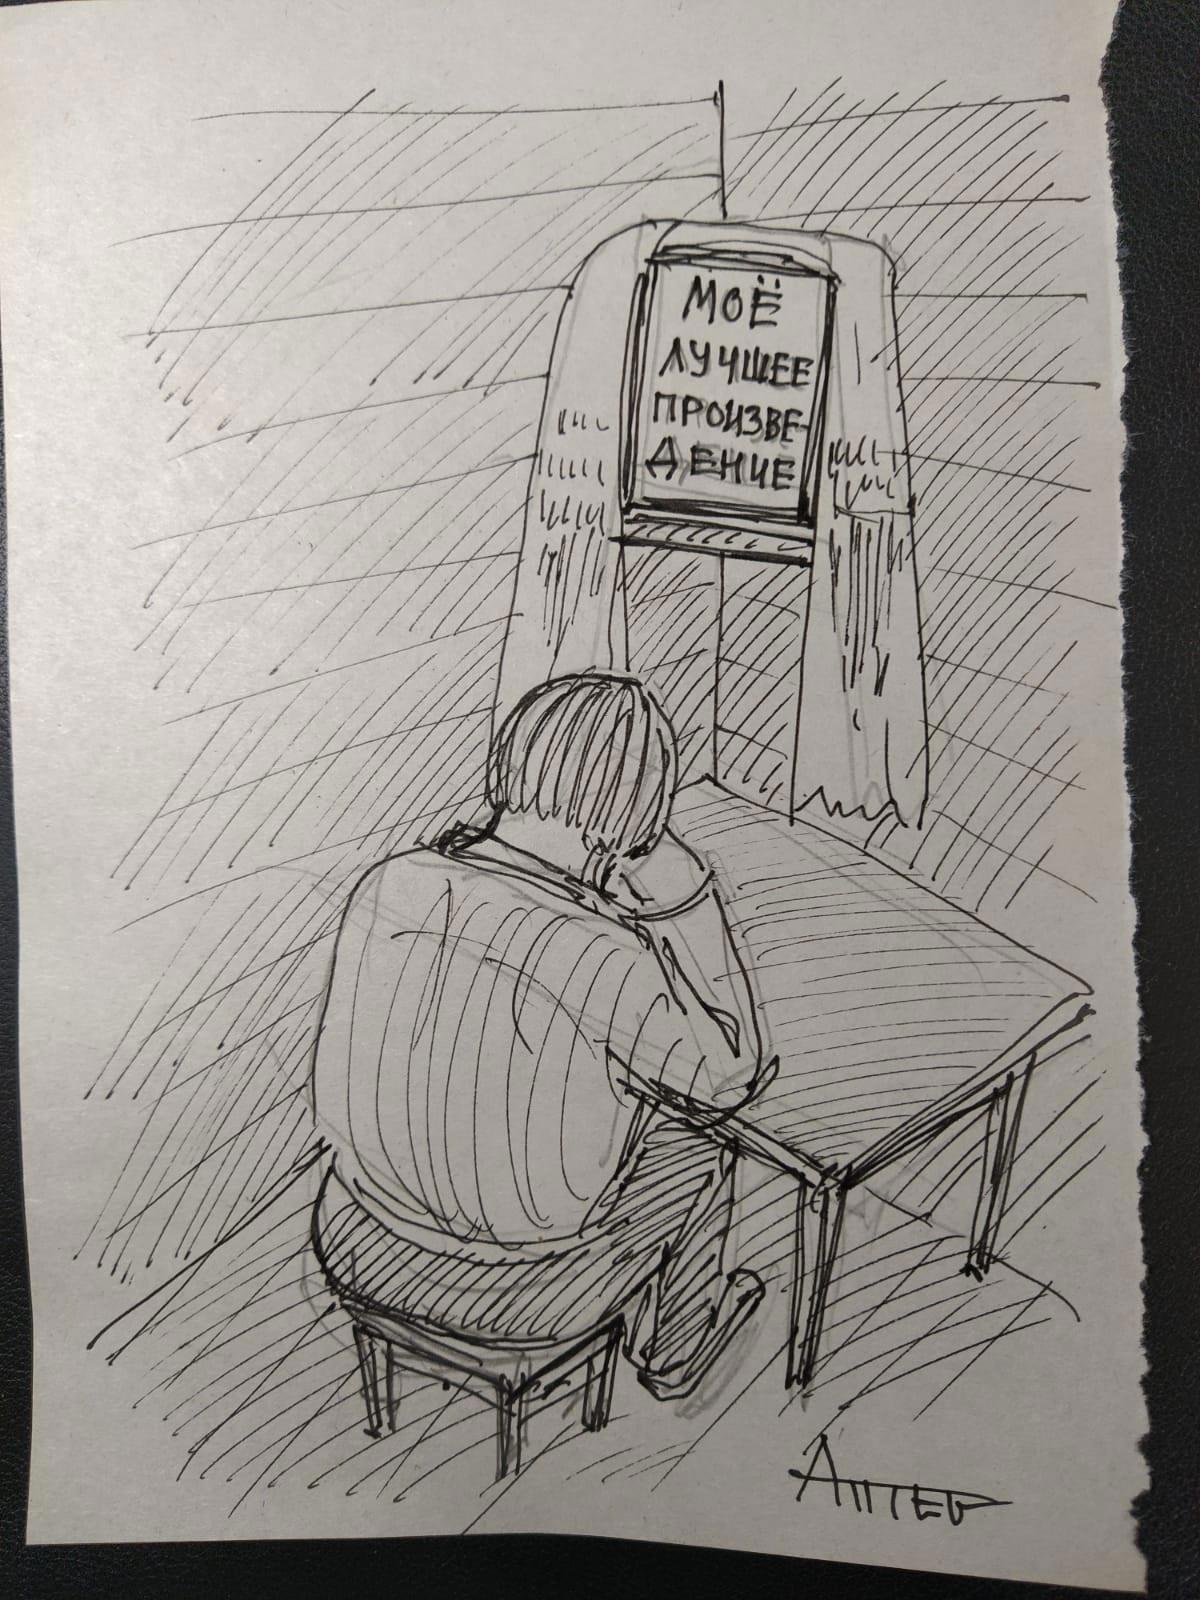 МОЁ
ЛУЧШЕЕ
ПРОИЗВЕ-
ДЕНИЕ
Аптер